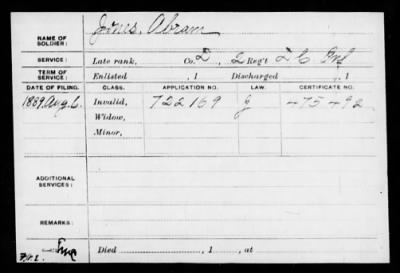 NAME OF SOLDIER: Jones, Abram
SERVICE: Late rank, Co. D, 2 Reg't D C Inf
TERM OF SERVICE: Enlisted , 1 Discharged , 1
DATE OF FILING. CLASS. APPLICATION NO. LAW. CERTIFICATE NO.
1889, Aug. 6. Invalid, 722169 G 475492
Widow,
Minor,
ADDITIONAL SERVICES:
REMARKS:
Died , 1 , at